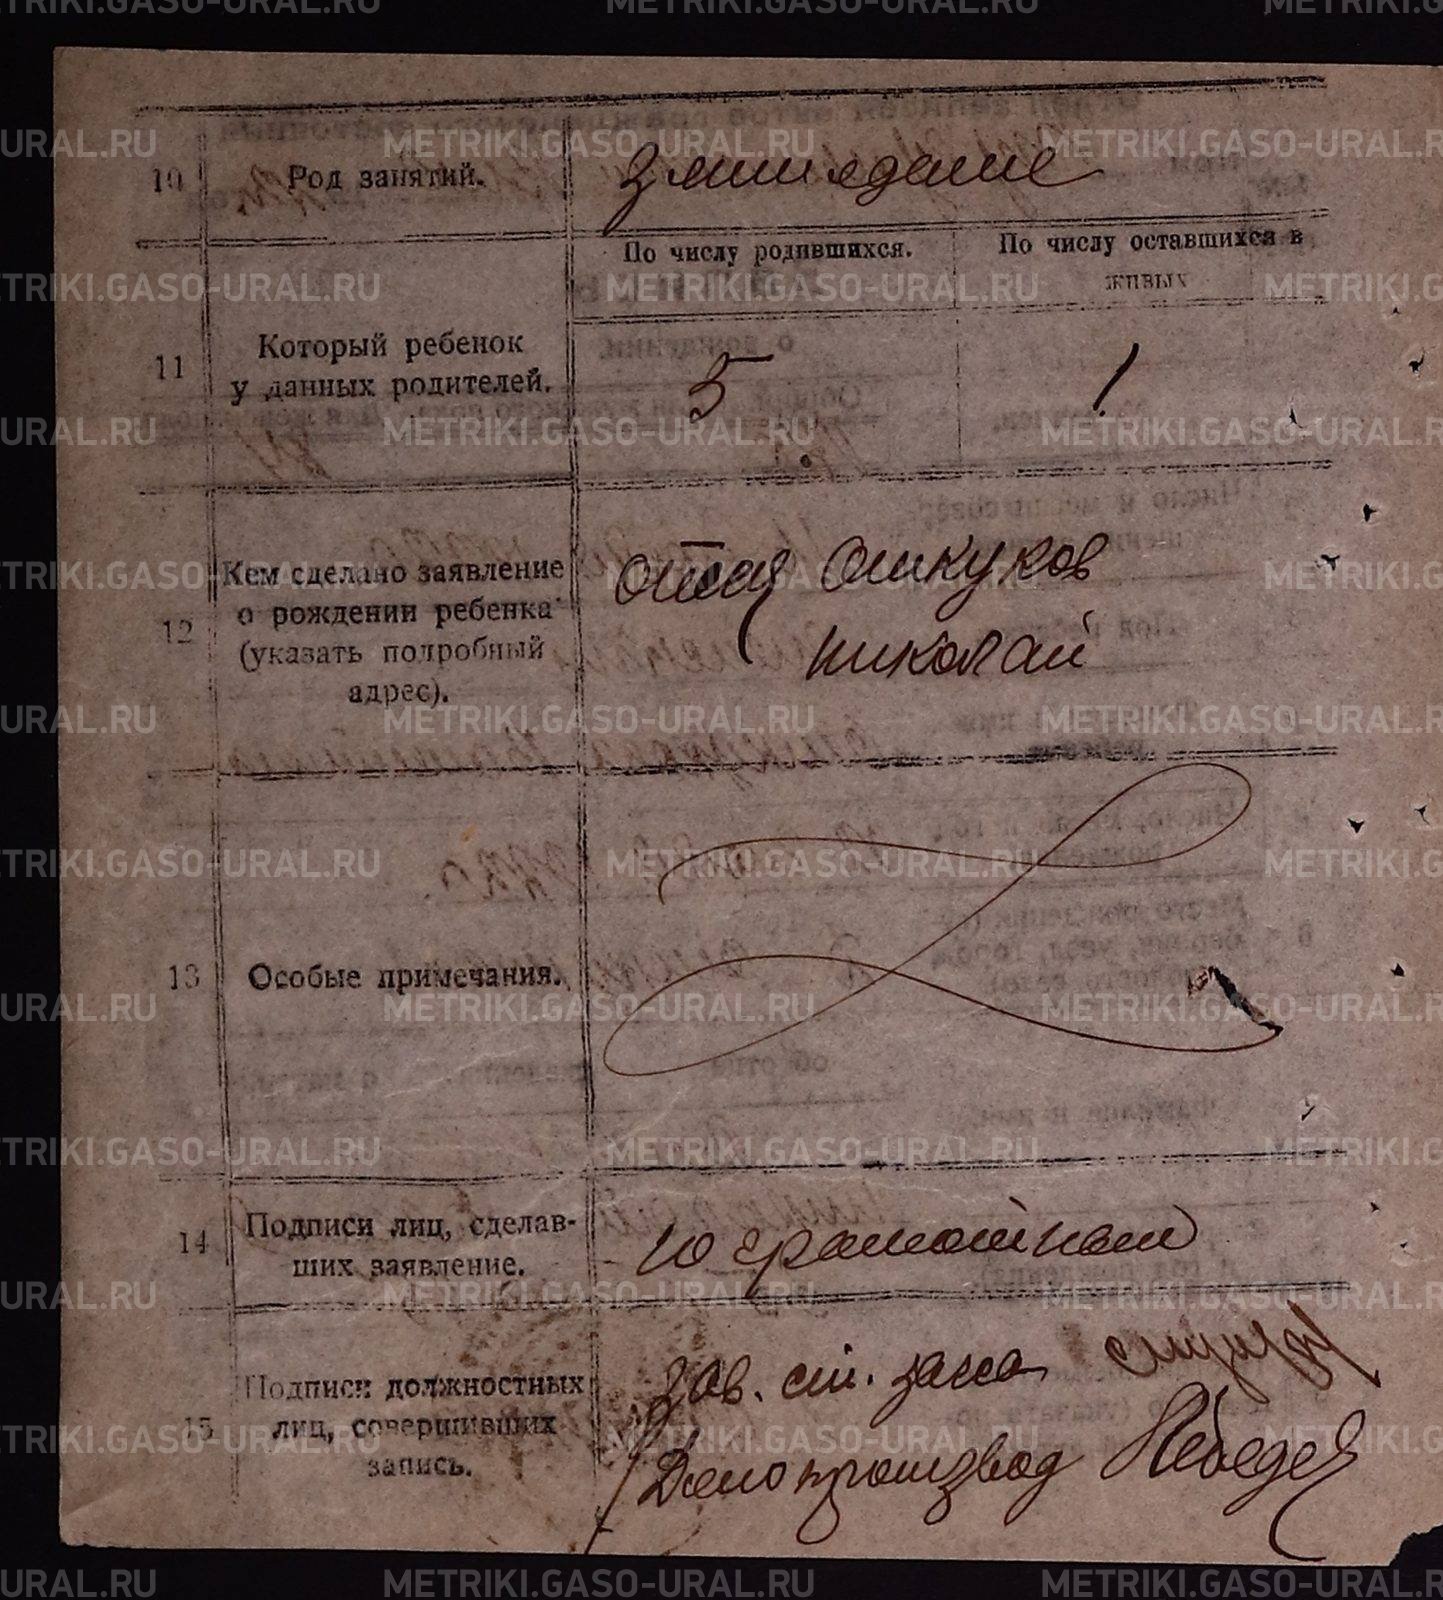 10 Род занятий. Землпедение
11 Который ребенок у данных родителей.
По числу родившихся. По числу оставшихся в живых
5 1
12 Кем сделано заявление
о рождении ребенка
(указать подробный
адрес).
отец Ошкуков
Николай
13 Особые примечания.
14 Подписи лиц, сделав-
ших заявление.
15 Подписи должностных
лиц, совершивших
запись.
Зав.
Делопроизвод Лебедев
METRIKI.GASO-URAL.RU